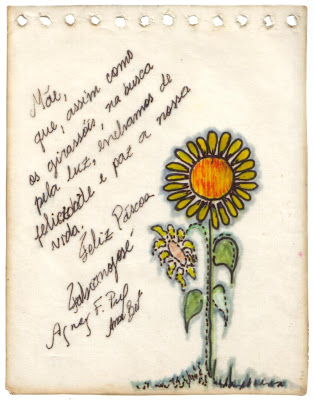 Mãe,
que, assim como
os girassóis, na busca
pela luz, enchamos de
felicidade e paz a nossa
vida.
Feliz Páscoa
Agnez F.